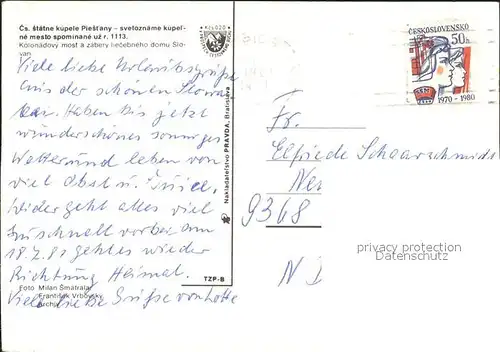 Čs. štátne kúpele Piešťany – svetoznáme kúpeľ-
né mesto spomínané už r. 1113.
Kolonádový most a zábery liečebného domu Slo-
van
Viele liebe Urlaubsgrüße
aus der schönen Slowa
kei. Haben bis jetzt
wunderschönes sonniges
Wetter und leben von
viel Obst u.
Leider geht alles viel
zu schnell vorbei, am
18.7.81 geht es wieder
Richtung Heimat.
Viele liebe Grüße von Lotte
Foto Milan Šmatrala
František Vrbovský
archív
TZP-B
Nakladateľstvo PRAVDA, Bratislava
ČESKOSLOVENSKO
50h
1970 - 1980
Fr.
Elfriede Schaarschmidt
9368
privacy protection
Datenschutz